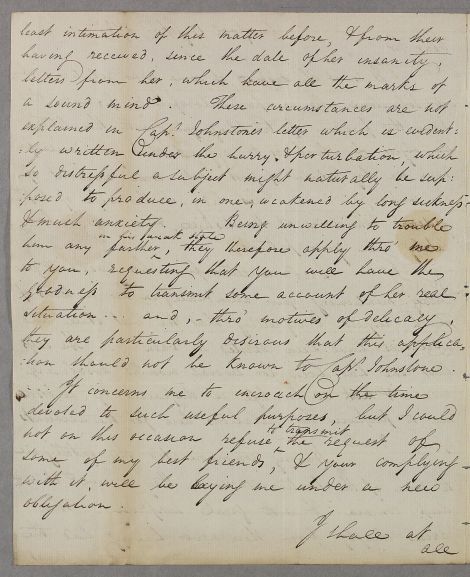 least intimation of this matter before, & from their
having received, since the date of her insanity,
letters from her, which have all the marks of
a sound mind. These circumstances are not
explained in Capt. Johnstone's letter which is evident-
:ly written under the hurry & perturbation, which
so distressful a subject might naturally be sup:
:posed to produce, in one weakened by long sickness
& much anxiety. Being unwilling to trouble
in his present state
him any farther, they therefore apply thro' me
to you, requesting that you will have the
goodness to transmit some account of her real
situation... and, - thro' motives of delicacy
they are particularly desirous that this applica-
tion should not be known to Capt. Johnstone.
... It concerns me to encroach on the time
devoted to such useful purposes, but I could
to transmit
not on this occasion refuse the request of
some of my best friends, & your complying
with it will be laying me under a new
obligation.
I shall at
all